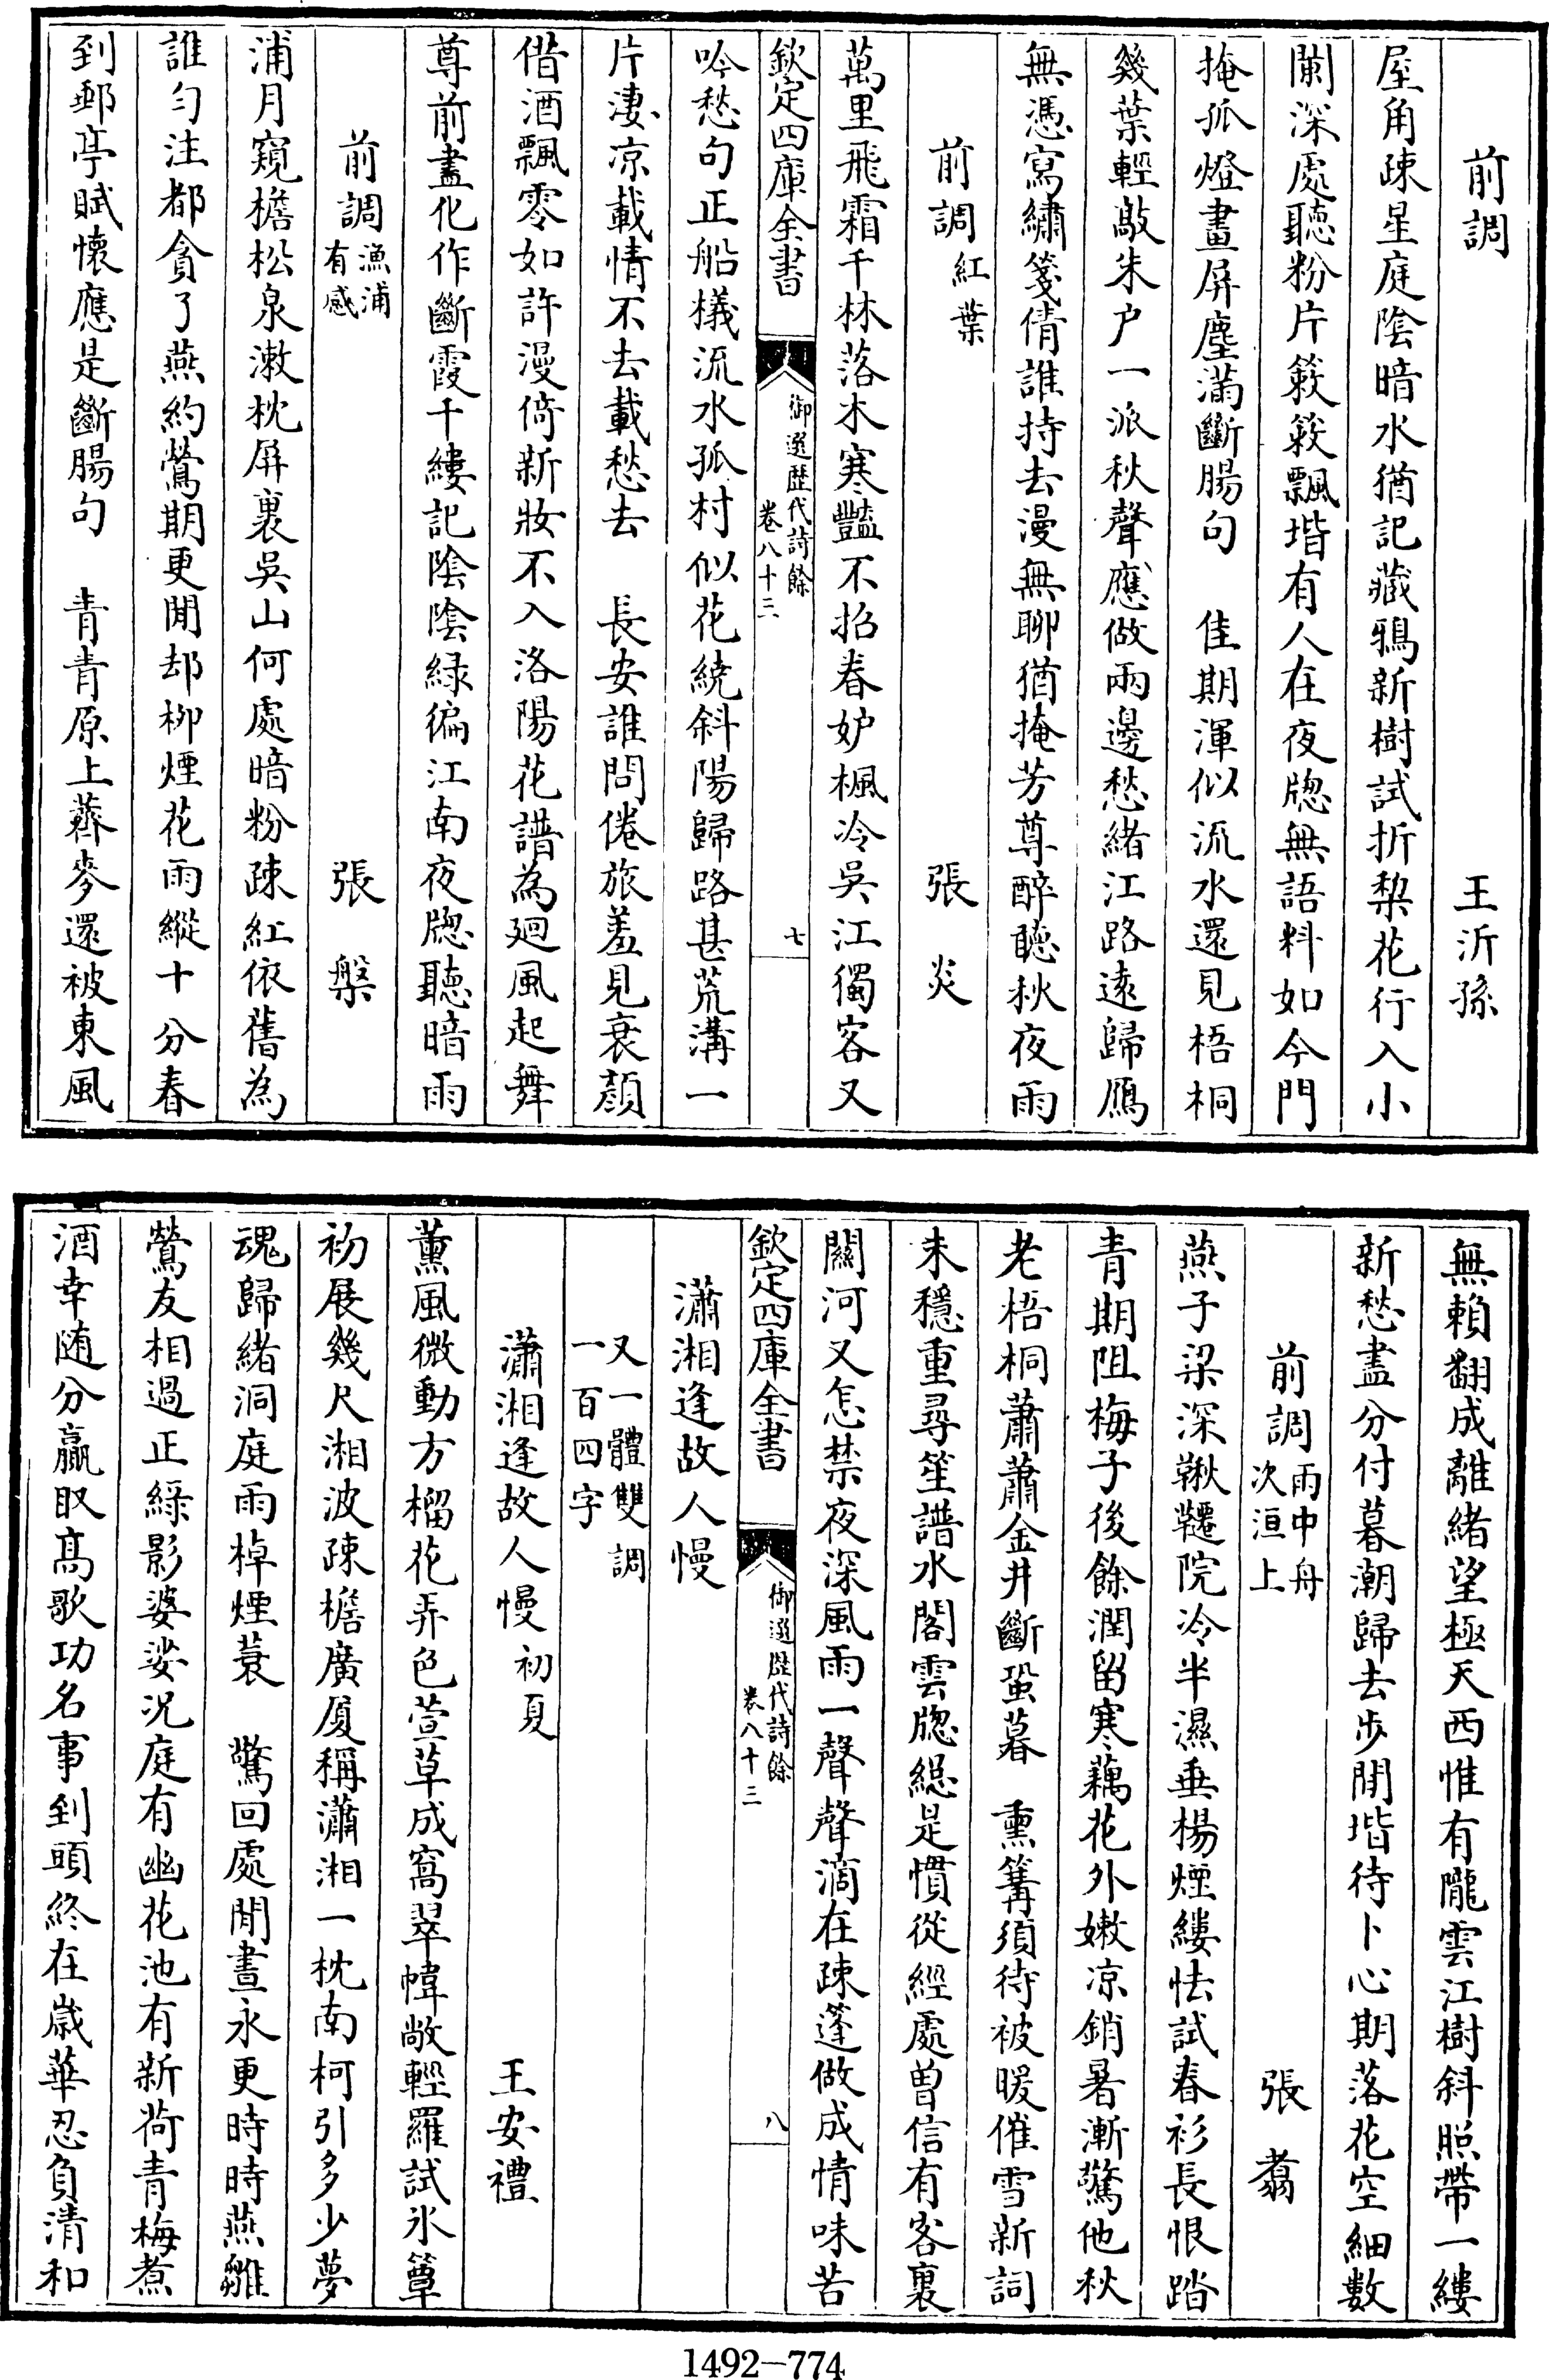 前調 王沂孫
屋角疎星庭陰暗水猶記藏鴉新樹試折棃花行入小
闌深處聽粉片簌簌飄堦有人在夜牕無語料如今門
掩孤燈畫屏塵滿斷腸句 佳期渾似流水還見梧桐
幾葉輕敲朱户一派秋聲應做兩邊愁緒江路遠歸鴈
無憑寫繡箋倩誰持去漫無聊猶掩芳尊醉聽秋夜雨
前調紅葉 張炎
萬里飛霜千林落木寒豔不招春妒楓冷吳江獨客又
欽定四庫全書 御選歷代詩餘 卷八十三 七
吟愁句正船檥流水孤村似花繞斜陽歸路甚荒溝一
片淒涼載情不去載愁去 長安誰問倦旅羞見衰顔
借酒飄零如許漫倚新妝不入洛陽花譜為廻風起舞
尊前盡化作斷霞千縷記陰陰緑徧江南夜牕聽暗雨
前調漁浦有感 張槃
浦月窺檐松泉漱枕屏裏吳山何處暗粉疎紅依舊為
誰勻注都貪了燕約鶯期更閒却柳煙花雨縱十分春
到郵亭賦懷應是斷腸句 青青原上薺麥還被東風
無賴翻成離緒望極天西惟有隴雲江樹斜照帶一縷
新愁盡分付暮潮歸去步閒堦待卜心期落花空細數
前調雨中舟次洹上 張翥
燕子梁深鞦韆院冷半濕垂楊煙縷怯試春衫長恨踏
青期阻梅子後餘潤留寒藕花外嫩凉銷暑漸驚他秋
老梧桐蕭蕭金井斷蛩暮 熏篝須待被暖催雪新詞
未穩重尋笙譜水閣雲牕總是慣從經處曾信有客裏
關河又怎禁夜深風雨一聲聲滴在疎蓬做成情味苦
欽定四庫全書 御選歷代詩餘 卷八十三 八
瀟湘逢故人慢
又一體雙調一百四字
瀟湘逢故人慢初夏 王安禮
薰風微動方榴花弄色萱草成窩翠幃敞輕羅試氷簟
初展幾尺湘波疎檐廣厦稱瀟湘一枕南柯引多少夢
魂歸緒洞庭雨棹煙蓑 驚回處閒晝永更時時燕雛
鶯友相過正緑影婆娑况庭有幽花池有新荷青梅煮
酒幸随分贏取髙歌功名事到頭終在歲華忍負清和
1492—774